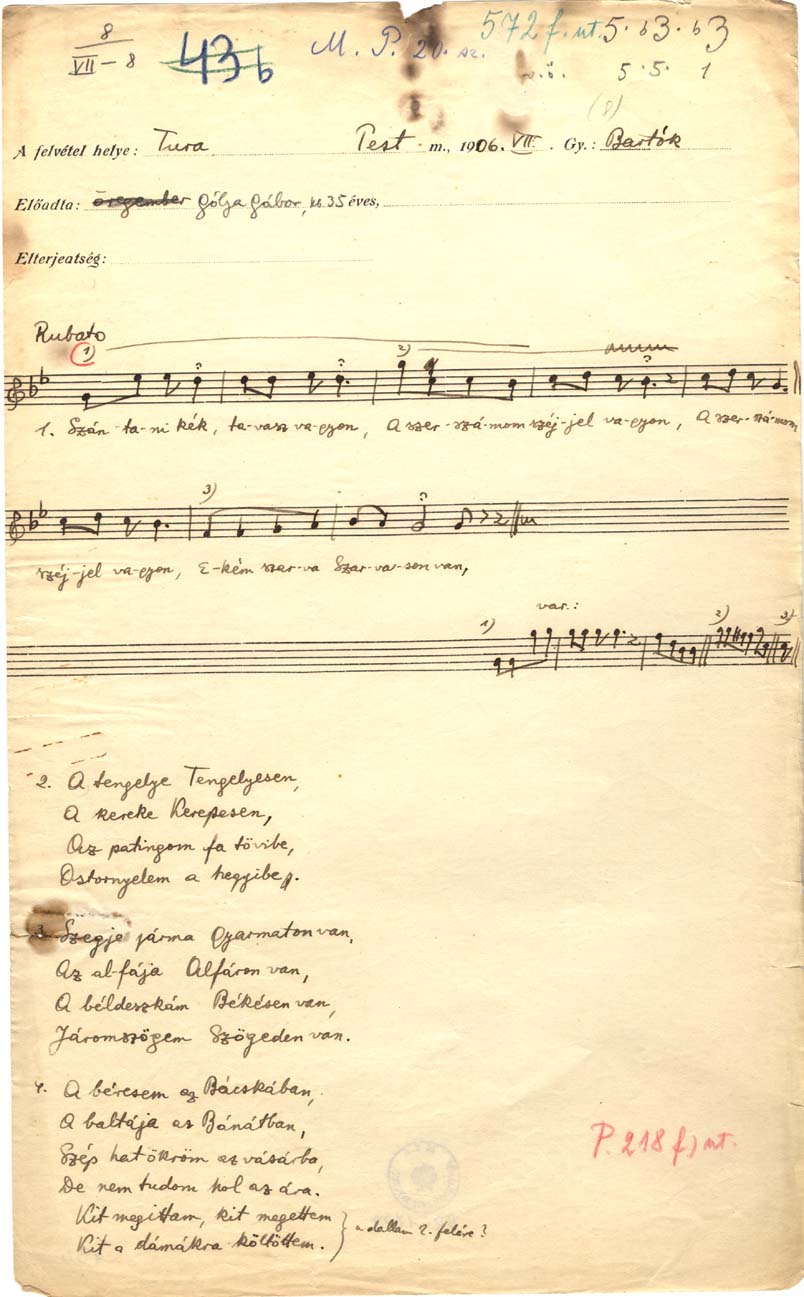 8
VII – 8
43b
M. P. 20. sz.
572 f. nt.
5 · b3 · b3
v. ö. 5 · 5 · 1
(8)
A felvétel helye: Tura Pest m., 1906. VII. Gy.: Bartók
Előadta: öregember Gólya Gábor, kb 35 éves,
Elterjedtség:
Rubato
1) 2)
1. Szán-ta-ni kék, ta-vasz va-gyon, A szer-szá-mom széj-jel va-gyon, A szer-szá-mom
3)
széj-jel va-gyon, E-kém szar-va Szar-va-son van,
var.:
1) 2) 3)
2. A tengelye Tengelyesen,
A kereke Kerepesen,
Az patingom fa tövibe,
Ostornyelem a hegyibe.
3. Szegje járma Gyarmaton van,
Az al-fája Alfáron van,
A béldeszkám Békésen van,
Járomszögem Szögeden van.
4. A béresem az Bácskában,
A baltája az Bánátban,
Szép hat ökröm az vásárba,
De nem tudom hol az ára.
Kit megittam, kit megettem
Kit a dámákra költöttem. } a dallam 2. felére?
P. 218 f) nt.